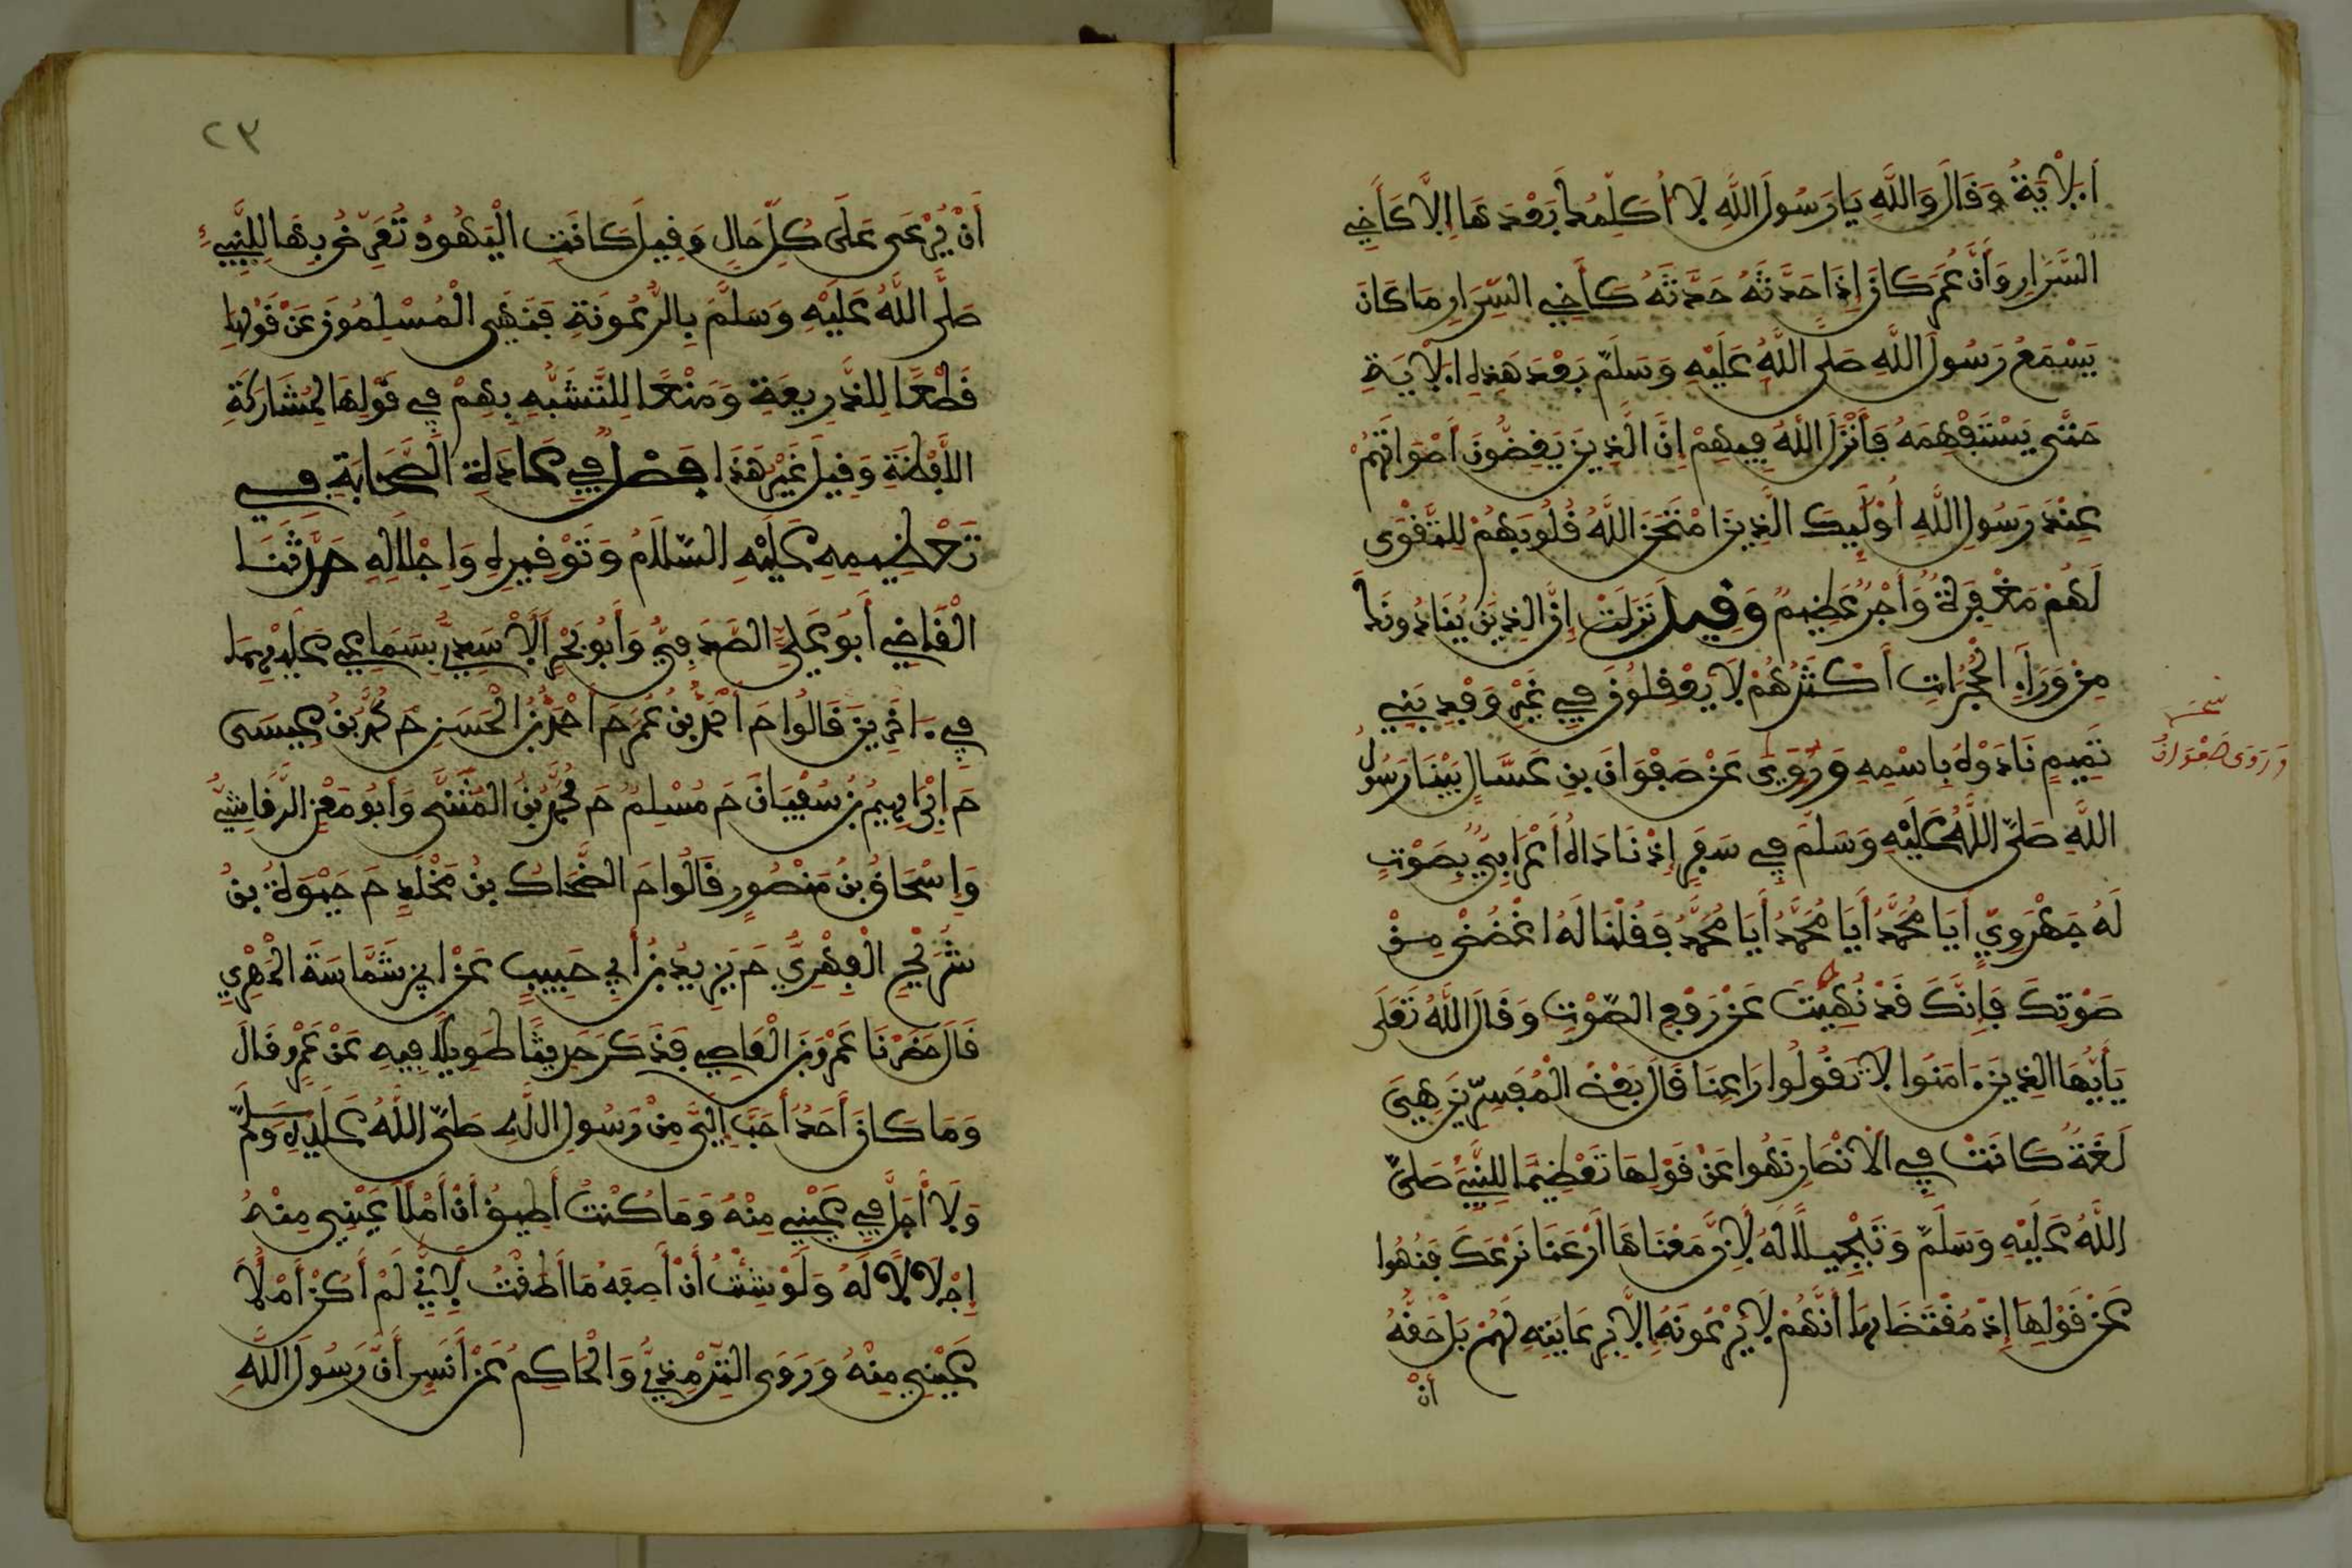 اَلْآيَةُ وَقَالَ وَاللَّهِ يَا رَسُولَ اللَّهِ لَا أُكَلِّمُكَ بَعْدَهَا إِلَّا كَأَخِي
السِّرَارِ وَأَنَّ عُمَرَ كَانَ إِذَا حَدَّثَهُ حَدَّثَهُ كَأَخِي السِّرَارِ مَا كَانَ
يَسْمَعُ رَسُولُ اللَّهِ صَلَّى اللَّهُ عَلَيْهِ وَسَلَّمَ بَعْدَ هَذِهِ اِلْآيَةِ
حَتَّى يَسْتَفْهِمَهُ فَأَنْزَلَ اللَّهُ فِيهِمْ إِنَّ الَّذِينَ يَغُضُّونَ أَصْوَاتَهُمْ
عِنْدَ رَسُولِ اللَّهِ أُوْلَئِكَ الَّذِينَ امْتَحَنَ اللَّهُ قُلُوبَهُمْ لِلتَّقْوَى
لَهُمْ مَغْفِرَةٌ وَأَجْرٌ عَظِيمٌ وَقِيلَ نَزَلَتْ إِنَّ الَّذِينَ يُنَادُونَكَ
مِنْ وَرَاءِ الْحُجُرَاتِ أَكْثَرُهُمْ لَا يَعْقِلُونَ فِي غَيْرِ وَفْدِ بَنِي
تَمِيمٍ نَادَوْهُ بِاسْمِهِ وَرُوِيَ عَنْ صَفْوَانَ بْنِ عَسَّالٍ بَيْنَا رَسُولُ
نسخة
وَرَوَى صَفْوَانُ
اللَّهِ صَلَّى اللَّهُ عَلَيْهِ وَسَلَّمَ فِي سَفَرٍ إِذْ نَادَاهُ أَعْرَابِيٌّ بِصَوْتٍ
لَهُ جَهْوَرِيٍّ أَيَا مُحَمَّدُ أَيَا مُحَمَّدُ أَيَا مُحَمَّدُ فَقُلْنَا لَهُ اغْضُضْ مِنْ
صَوْتِكَ فَإِنَّكَ قَدْ نُهِيتَ عَنْ رَفْعِ الصَّوْتِ وَقَالَ اللَّهُ تَعَلَى
يَأَيُّهَا الَّذِينَ ءَامَنُوا لَا تَقُولُوا رَاعِنَا قَالَ بَعْضُ الْمُفَسِّرِينَ هِيَ
لُغَةٌ كَانَتْ فِي الْأَنْصَارِ نُهُوا عَنْ قَوْلِهَا تَعْظِيمًا لِلنَّبِيِّ صَلَّى
اللَّهُ عَلَيْهِ وَسَلَّمَ وَتَبْجِيلًا لَهُ لِأَنَّ مَعْنَاهَا أَرْعَنَا نَرْعَكَ فَنُهُوا
عَنْ قَوْلِهَا إِذْ مُقْتَضَاهَا أَنَّهُمْ لَا يَرْعَوْنَهُ إِلَّا بِرِعَايَتِهِ لَهُمْ بَلْ حَقُّهُ
أَنْ
٢٣
أَنْ يُرْعَى عَلَى كُلِّ حَالٍ وَقِيلَ كَانَتِ الْيَهُودُ تُعَرِّضُ بِهَا لِلنَّبِيءِ
صَلَّى اللَّهُ عَلَيْهِ وَسَلَّمَ بِالرُّعُونَةِ فَنُهِيَ الْمُسْلِمُونَ عَنْ قَوْلِهَا
قَطْعًا لِلذَّرِيعَةِ وَمَنْعًا لِلتَّشَبُّهِ بِهِمْ فِي قَوْلِهَا لِمُشَارَكَةِ
اللَّفْظَةِ وَقِيلَ غَيْرُ هَذَا فَصْلٌ فِي عَادَةِ الصَّحَابَةِ فِي
تَعْظِيمِهِ عَلَيْهِ السَّلَامُ وَتَوْقِيرِهِ وَإِجْلَالِهِ حَدَّثَنَا
الْقَاضِي أَبُو عَلِيٍّ الصَّدَفِيُّ وَأَبُو بَحْرٍ الْأَسَدِيُّ بِسَمَاعِي عَلَيْهِمَا
فِي ءَاخَرِينَ قَالُوا حَ أَحْمَدُ بْنُ عُمَرَ حَ أَحْمَدُ بْنُ الْحَسَنِ حَ مُحَمَّدُ بْنُ عِيسَى
حَ إِبْرَاهِيمُ بْنُ سُفْيَانَ حَ مُسْلِمٌ حَ مُحَمَّدُ بْنُ الْمُثَنَّى وَأَبُو مَعْنٍ الرَّقَاشِيُّ
وَإِسْحَاقُ بْنُ مَنْصُورٍ قَالُوا حَ الضَّحَّاكُ بْنُ مَخْلَدٍ حَ حَيْوَةُ بْنُ
شُرَيْحٍ الْفِهْرِيُّ حَ يَزِيدُ بْنُ أَبِي حَبِيبٍ عَنْ ابْنِ شَمَّاسَةَ الْمَهْرِيِ
قَالَ حَضَرْنَا عَمْرَو بْنَ الْعَاصِي فَذَكَرَ حَدِيثًا طَوِيلًا فِيهِ عَنْ عَمْرٍو قَالَ
وَمَا كَانَ أَحَدٌ أَحَبَّ إِلَيَّ مِنْ رَسُولِ اللَّهِ صَلَّى اللَّهُ عَلَيْهِ وَسَلَّمَ
وَلَا أَجَلَّ فِي عَيْنِي مِنْهُ وَمَا كُنْتُ أُطِيقُ أَنْ أَمْلَأَ عَيْنِي مِنْهُ
إِجْلَالًا لَهُ وَلَوْ شِئْتُ أَنْ أَصِفَهُ مَا أَطَقْتُ لِأَنِّي لَمْ أَكُنْ أَمْلَأُ
عَيْنِي مِنْهُ وَرَوَى التِّرْمِذِيُّ وَالْحَاكِمُ عَنْ أَنَسٍ أَنَّ رَسُولَ اللَّهِ